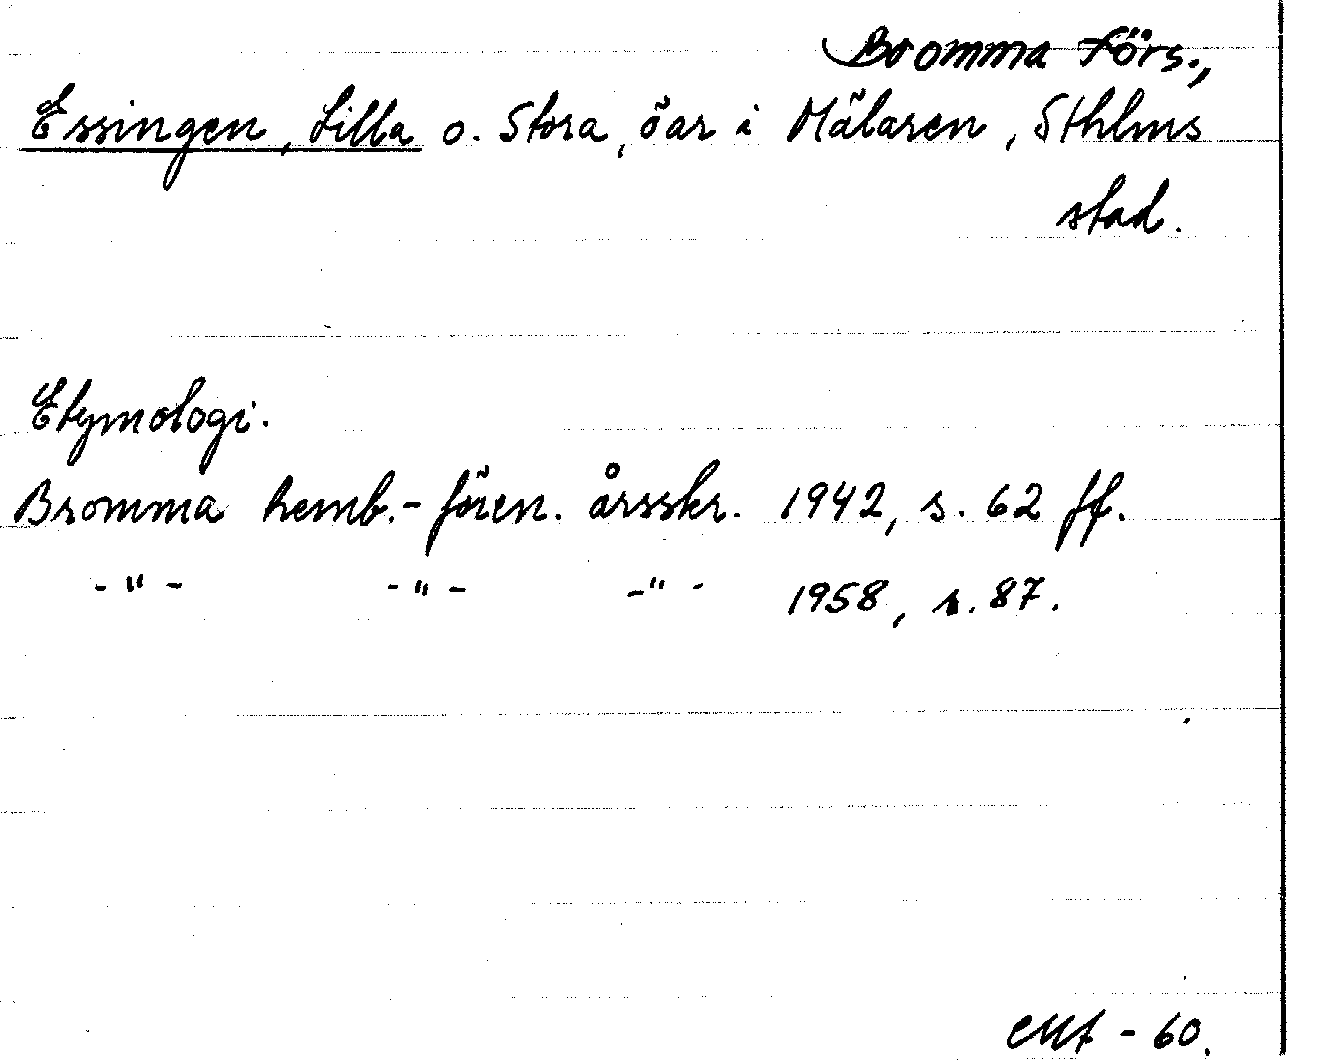 Bromma förs.,
Essingen, Lilla o. Stora, öar i Mälaren, Sthlms
stad.
Etymologi.
Bromma hemb.-fören. årsskr. 1942, s. 62 ff.
-"- -"- -"- 1958, s. 87.
- 60.